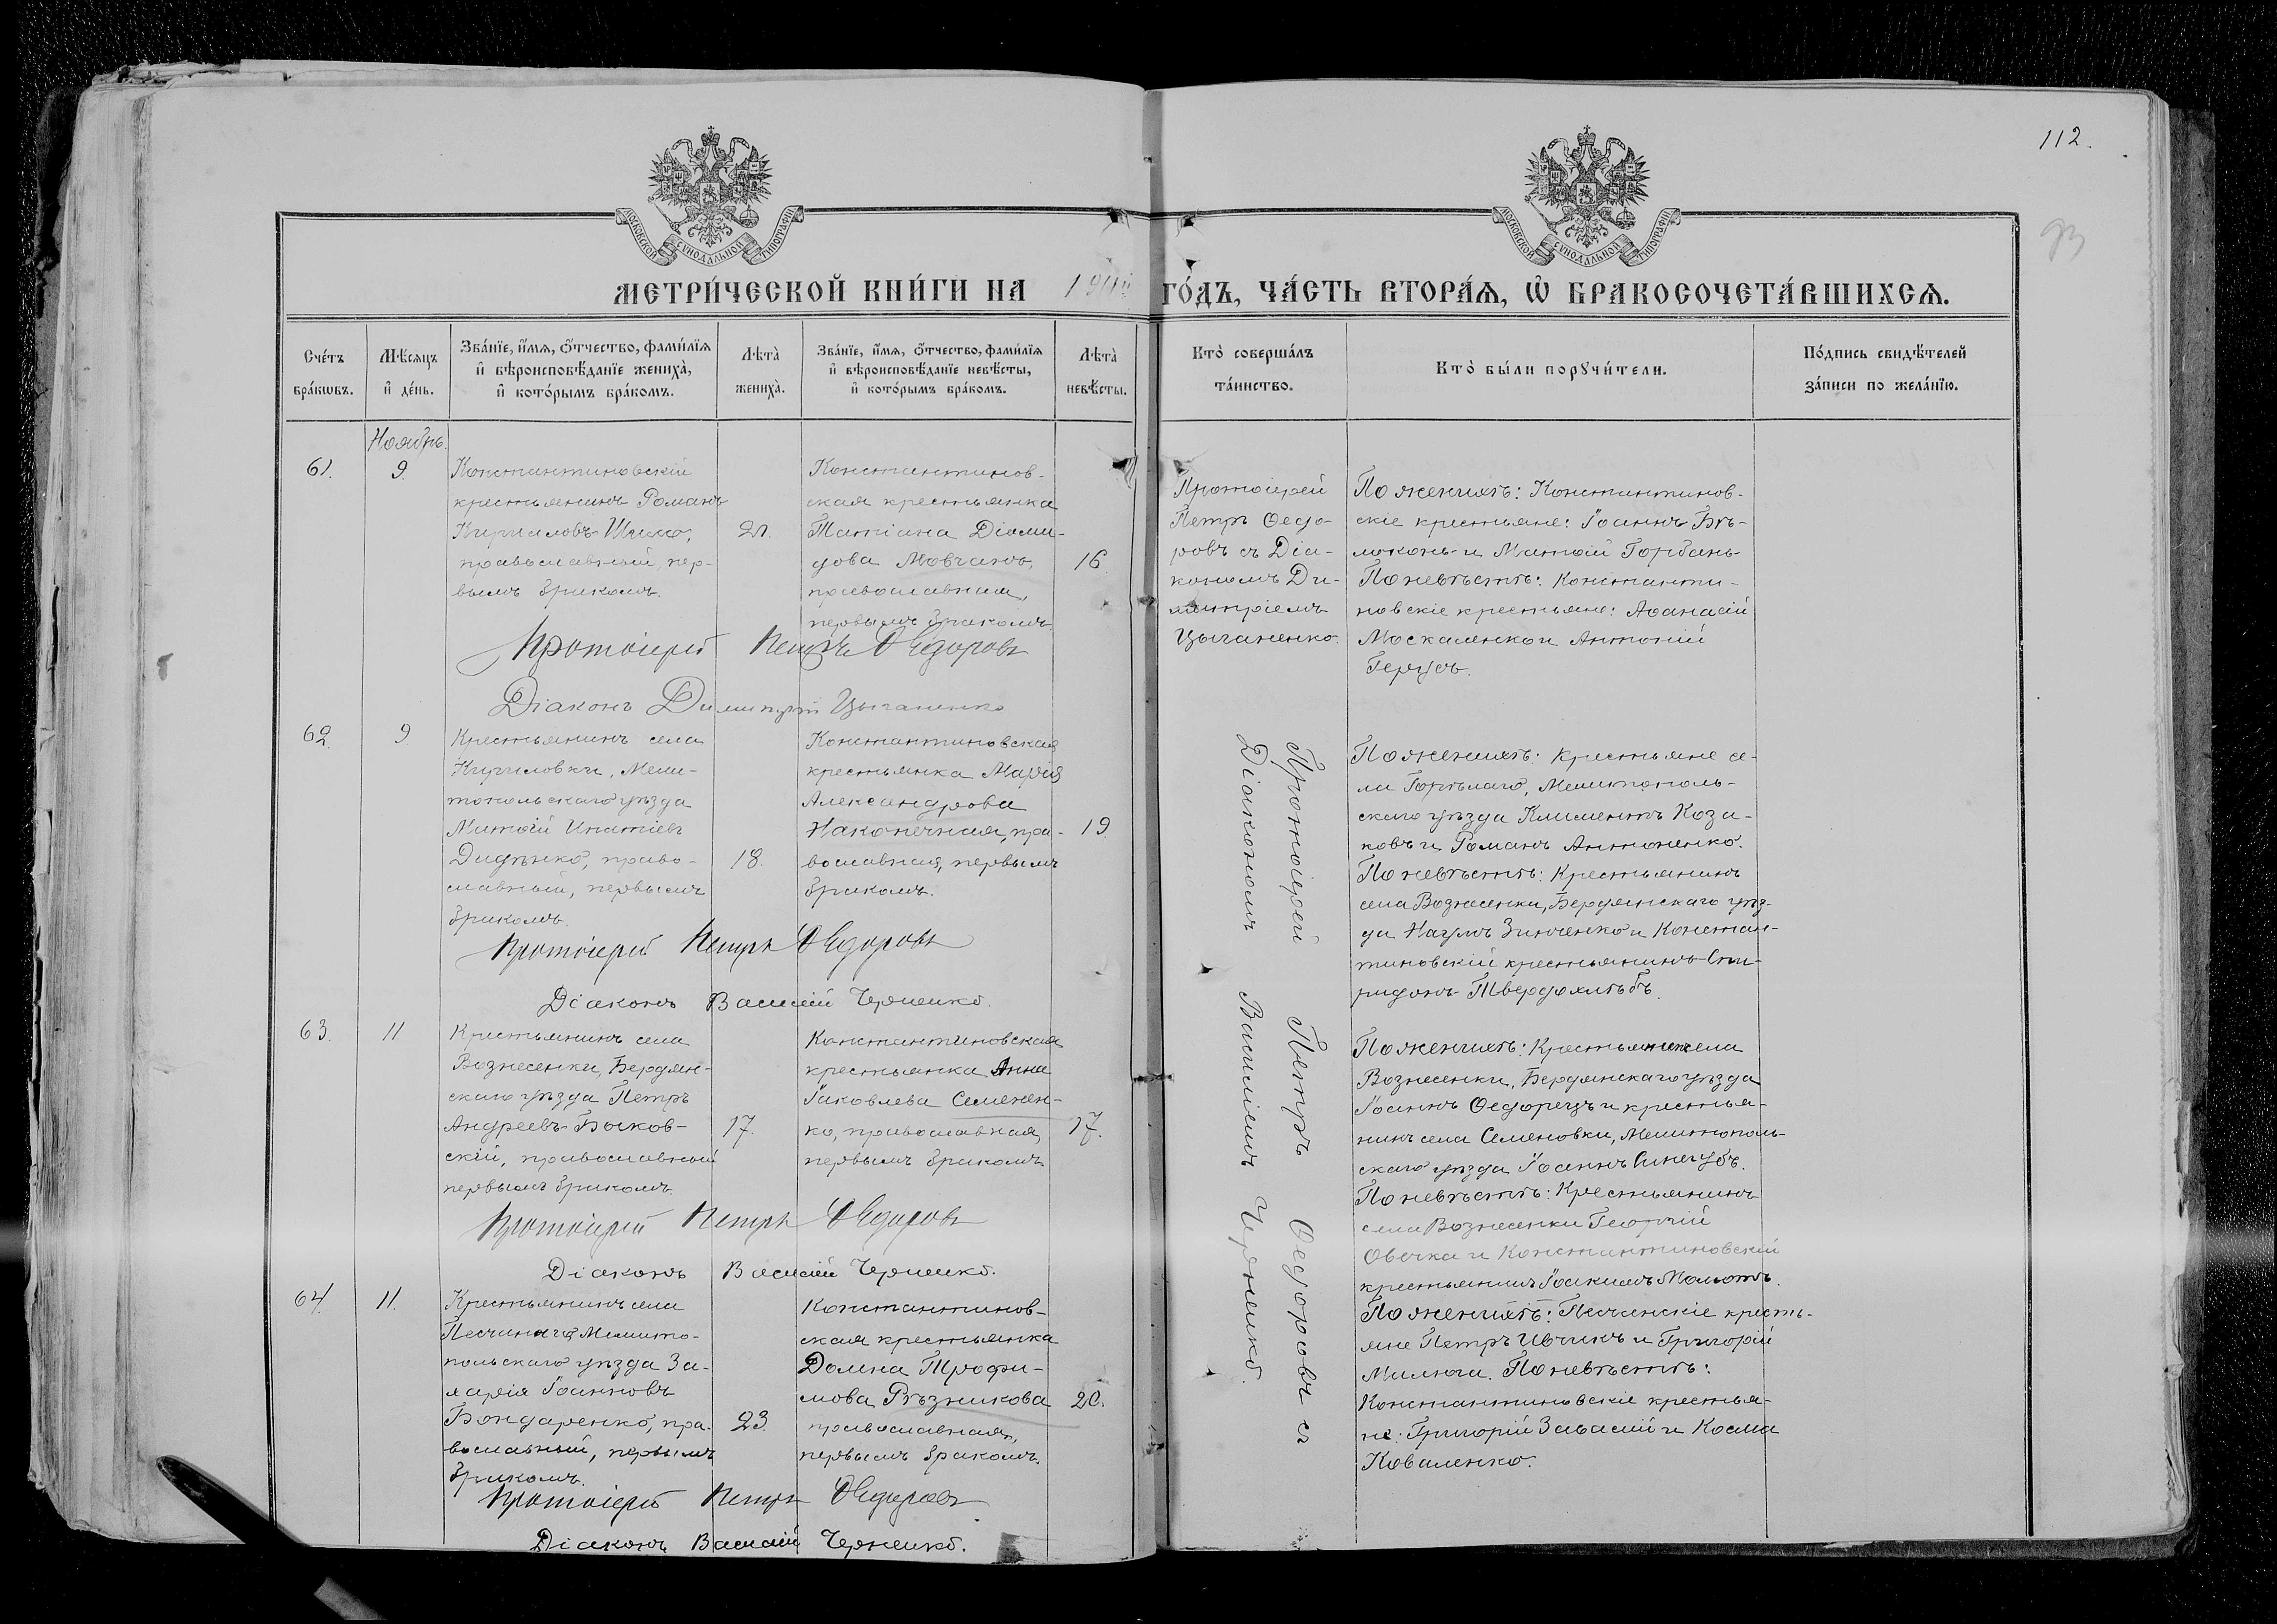 112.
93
МОСКОВСКОЙ СѴНОДАЛЬНОЙ ТИПОГРАФІИ
МОСКОВСКОЙ СѴНОДАЛЬНОЙ ТИПОГРАФІИ
МЕТРИ́ЧЕСКОЙ КНИ́ГИ НА ГО́ДЪ, ЧА́СТЬ ВТОРА́Ѧ, Ѡ҆ БРАКОСОЧЕТА́ВШИХСѦ.
Сче́тъ бра́кѡвъ.
Мѣ́сѧцъ и҆ де́нь.
Зва́нїе, и҆́мѧ, ѻ҆́тчество, фами́лїѧ
и҆ вѣроисповѣ́данїе жениха̀,
и҆ кото́рымъ бра́комъ.
Лѣта̀ жениха̀.
Зва́нїе, и҆́мѧ, ѻ҆́тчество, фами́лїѧ
и҆ вѣроисповѣ́данїе невѣ́сты,
и҆ кото́рымъ бра́комъ.
Лѣта̀ невѣ́сты.
Кто̀ соверша́лъ
та́инство.
Кто̀ бы́ли порꙋчи́тели.
По́дпись свидѣ́телей
за́писи по жела́нїю.
Ноябрь.
61.
9.
Константиновскій
крестьянинъ Романъ
Кирилловъ
православный, пер-
вымъ бракомъ.
21.
Константинов-
ская крестьянка
Татіана Діоми-
дова Мовчанъ,
православная,
первымъ бракомъ
16.
Протоіерей
Петръ Ѳедо-
ровъ съ Діа-
кономъ Ди-
митріемъ
Цыганенко.
По женихѣ: Константинов-
скіе крестьяне: Іоаннъ Бѣ-
локонь и Матѳій Горбань
По невѣстѣ: Константи-
новскіе крестьяне: Аѳанасій
Москаленко и Антоній
Герусъ.
Протоіерей Петръ Ѳедоровъ
Діаконъ Димитрій Цыганенко
62.
9.
Крестьянинъ села
Кириловки, Мели-
топольскаго уѣзда
Матѳій Игнатіевъ
Дидѣнко, право-
славный, первымъ
бракомъ.
18.
Константиновская
крестьянка Марія
Александрова
Наконечная, пра-
вославная, первымъ
бракомъ.
19
По женихѣ: Крестьяне се-
ла Горѣлаго, Мелитополь-
скаго уѣзда Климентъ Коза-
ковъ и Романъ Антоненко.
По невѣстѣ: Крестьянинъ
села Вознесенки, Бердянскаго уѣз-
да Наумъ Зинченко и Констан-
тиновскій крестьянинъ Спи-
ридонъ Твердохлѣбъ.
Протоіерей Петръ Ѳедоровъ
Діаконъ Василій Черненко.
Протоіерей Петръ Ѳедоровъ съ
Діакономъ Василіемъ Черненко.
63.
11
Крестьянинъ села
Вознесенки, Бердян-
скаго уѣзда Петръ
Андреевъ Быков-
скій, православный
первымъ бракомъ.
17.
Константиновская
крестьянка Анна
Іаковлева Семенен-
ко, православная,
первымъ бракомъ
17.
По женихѣ: Крестьянинъ села
Вознесенки, Бердянскаго уѣзда
Іоаннъ Ѳедорецъ и крестья-
нинъ села Семеновки, Мелитополь-
скаго уѣзда Іоаннъ Синегубъ.
По невѣстѣ: Крестьянинъ
села Вознесенки Георгій
Овечка и Константиновскій
крестьянинъ Іоакимъ
Протоіерей Петръ Ѳедоровъ
Діаконъ Василій Черненко.
64.
11.
Крестьянинъ села
Песчанаго Мелито-
польскаго уѣзда За-
харія Іоанновъ
Бондаренко, пра-
вославный, первымъ
бракомъ.
23.
Константинов-
ская крестьянка
Домна Трофи-
мова Рѣзникова
православная,
первымъ бракомъ.
20.
По женихѣ: Песчанскіе кресть-
яне Петръ Ивчикъ и Григорій
Милюга. По невѣстѣ:
Константиновскіе крестья-
не: Григорій и Косма
Коваленко.
Протоіерей Петръ Ѳедоровъ
Діаконъ Василій Черненко.